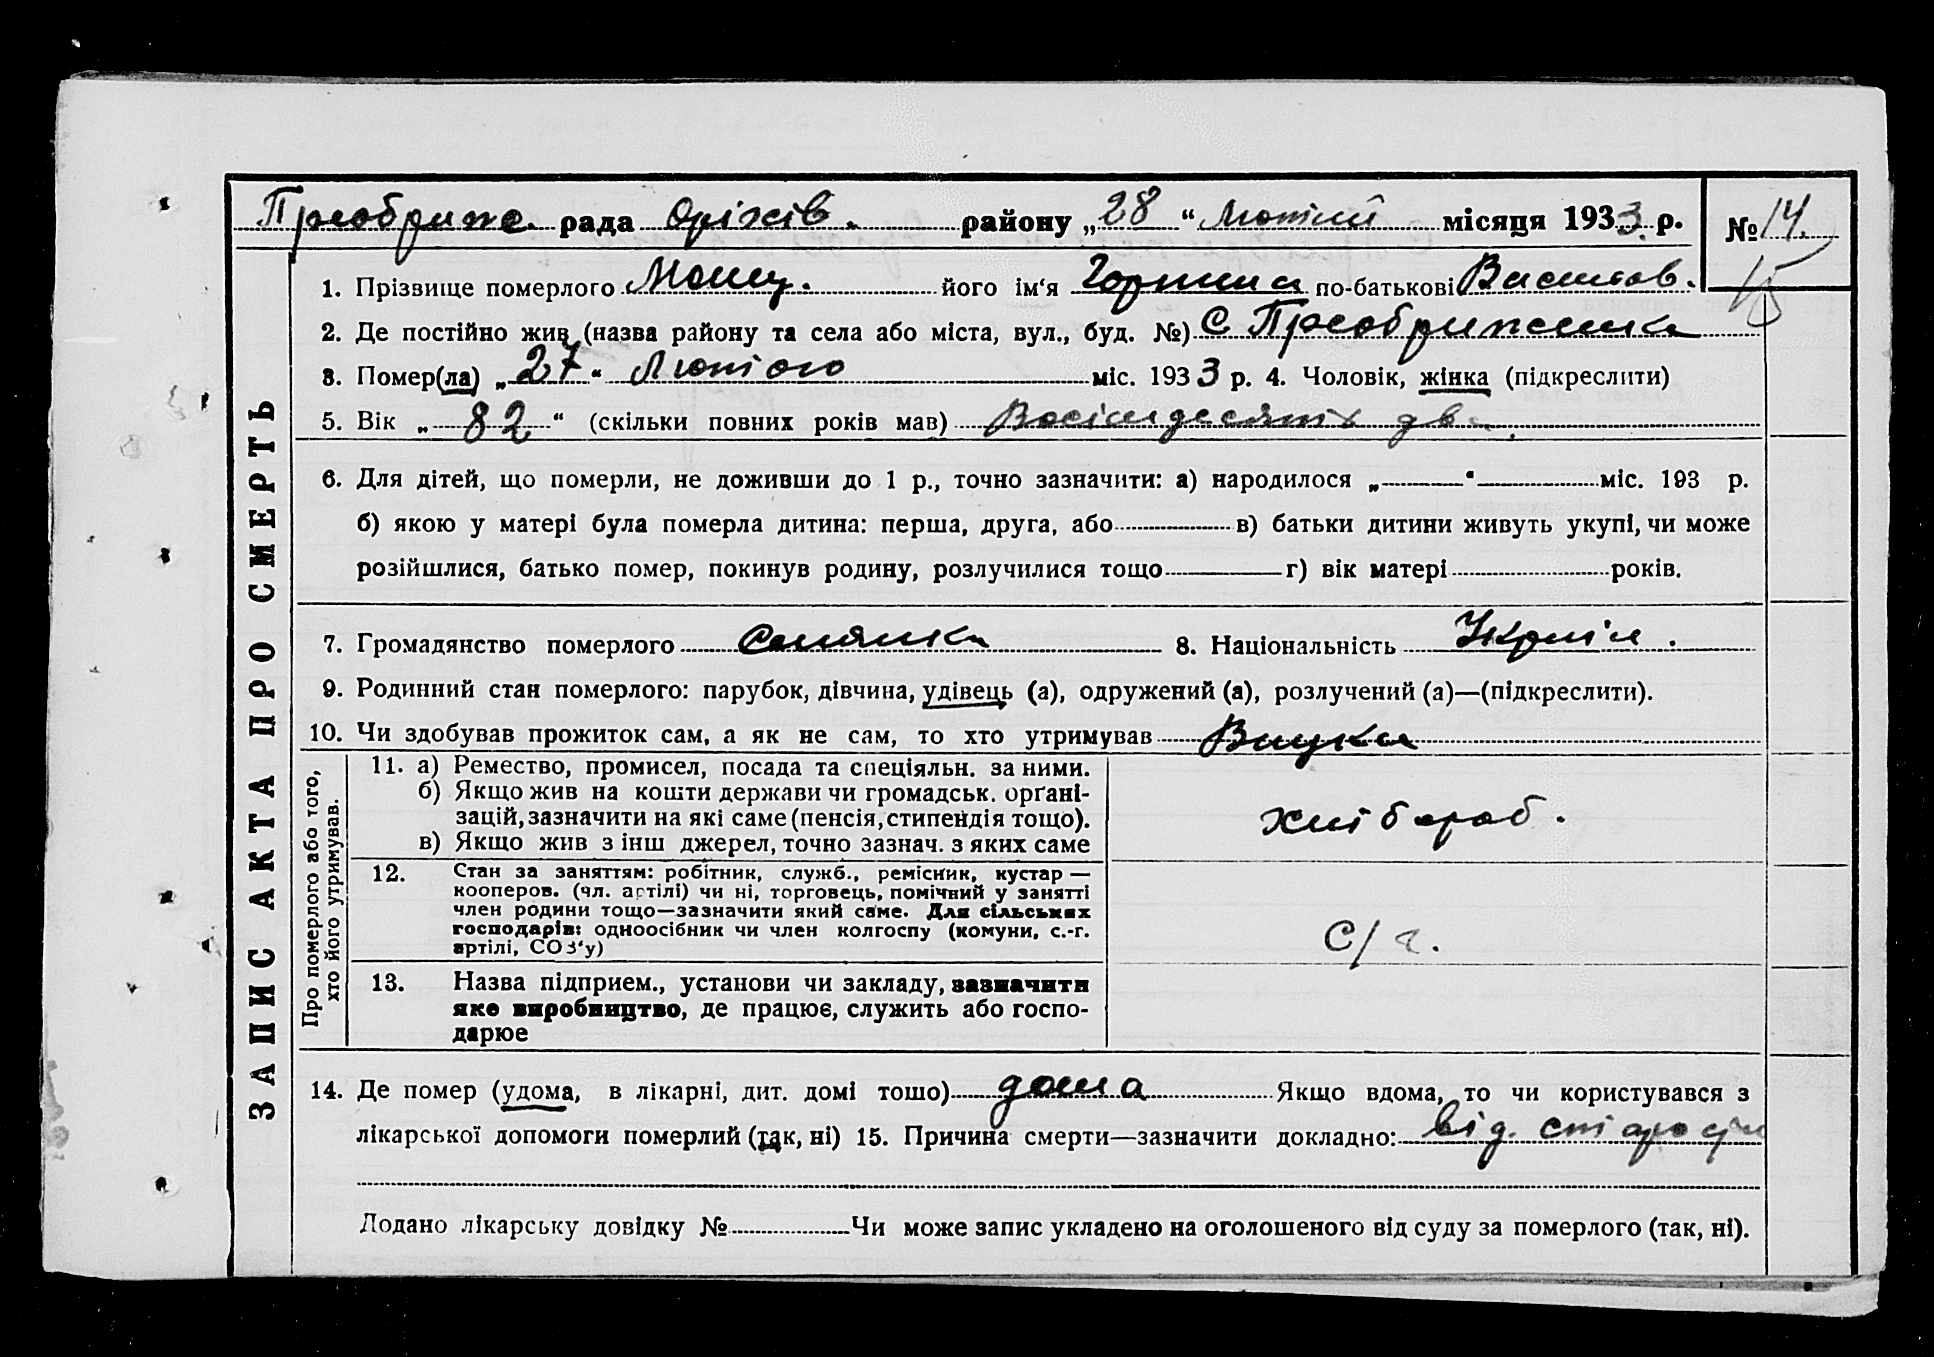 Преображе. рада Оріхів. району „28“ Лютий місяця 1933 р. № 14.
15
1. Прізвище померлого його ім'я по-батькові Василів.
2. Де постійно жив (назва району та села або міста, вул., буд. №) С Преображенка
3. Помер(ла) „27“ Лютого міс. 1933 р. 4. Чоловік, жінка (підкреслити)
5. Вік „82“ (скільки повних років мав) Восімдесять два.
6. Для дітей, що померли, не доживши до 1 р., точно зазначити: а) народилося „ “ міс. 193 р.
б) якою у матері була померла дитина: перша, друга, або в) батьки дитини живуть укупі, чи може
розійшлися, батько помер, покинув родину, розлучилися тощо г) вік матері років.
7. Громадянство померлого Селянка 8. Національність Україн.
9. Родинний стан померлого: парубок, дівчина, удівець (а), одружений (а), розлучений (а)—(підкреслити).
10. Чи здобував прожиток сам, а як не сам, то хто утримував Внука
ЗАПИС АКТА ПРО СМЕРТЬ
Про померлого або того,
хто його утримував.
11. а) Ремество, промисел, посада та спеціяльн. за ними.
б) Якщо жив на кошти держави чи громадськ. орґані-
зацій, зазначити на які саме (пенсія, стипендія тощо).
в) Якщо жив з інш джерел, точно зазнач. з яких саме
хлібороб.
12. Стан за заняттям: робітник, служб., ремісник, кустар —
кооперов. (чл. артілі) чи ні, торговець, помічний у занятті
член родини тощо—зазначити який саме. Для сільських
господарів: одноосібник чи член колгоспу (комуни, с.-г.
артілі, СОЗ'у)
С/г.
13. Назва підприєм., установи чи закладу, зазначити
яке виробництво, де працює, служить або госпо-
дарює
14. Де помер (удома, в лікарні, дит. домі тошо) дома Якщо вдома, то чи користувався з
лікарської допомоги померлий (так, ні) 15. Причина смерти—зазначити докладно: від старости
Додано лікарську довідку № Чи може запис укладено на оголошеного від суду за померлого (так, ні).